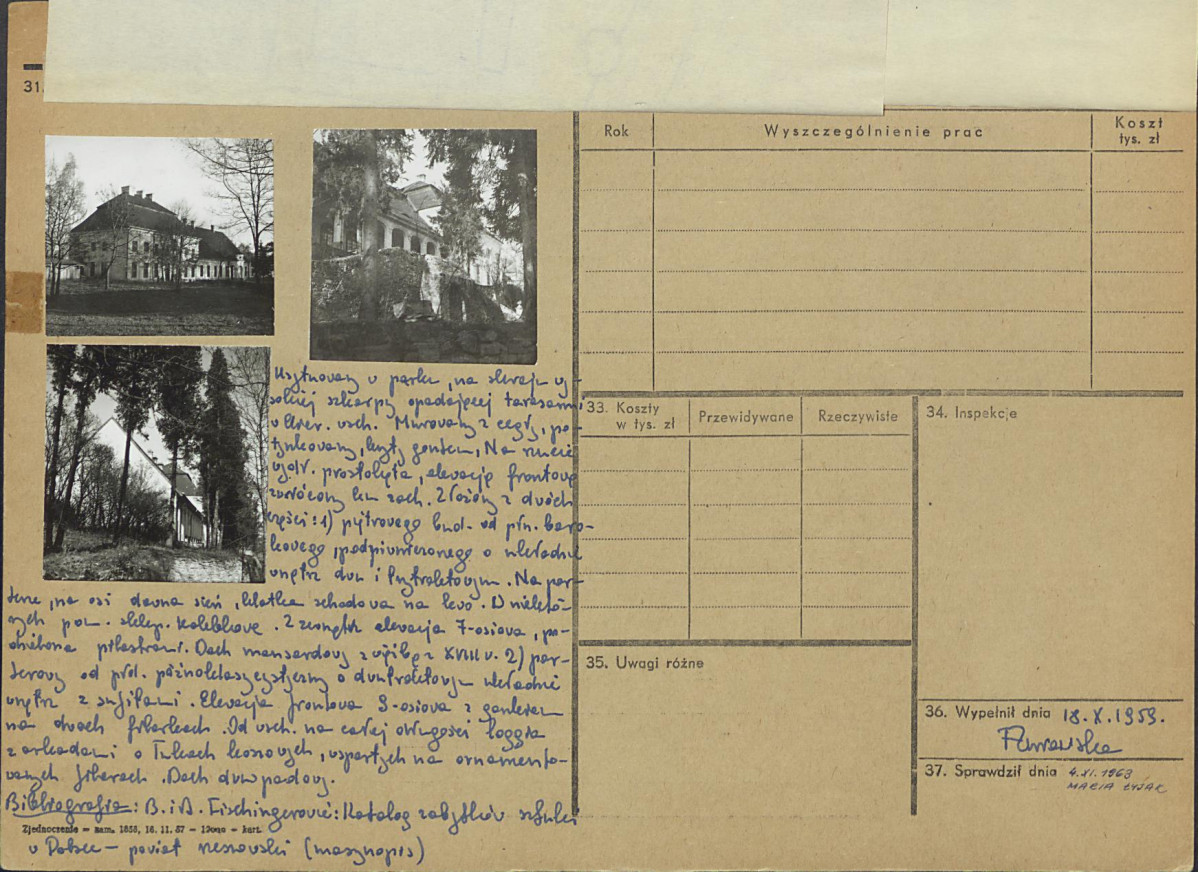 31.
Usytuowany w parku, na skraju wy-
sokiej szkarpy opadającej tarasami
w kier. wsch. Murowany z cegły, po-
tynkowany, kryty gontem. Na rzucie
wydł. prostokąta, elewacją frontową
zwrócony ku zach. Złożony z dwóch
części: 1) piętrowego bud. od płn. baro-
kowego, podpiwniczonego o układzie
wnętrz dwu i trzytraktowym. Na par-
terze, na osi dawna sień, klatka schodowa na lewo. W niektó-
rych pom. sklep. kolebkowe. Z zewnątrz elewacja 7-osiowa, po-
dzielona pilastrami. Dach mansardowy z
XVIII w. 2) par-
terowy od płd. późnoklasycystyczny o dwutraktowym układzie
wnętrz z sufitami. Elewacja frontowa 9-osiowa z gankiem
na dwóch filarkach. Od wsch. na całej długości loggia
z arkadami o łukach koszowych, wspartych na ornamento-
wanych filarach. Dach dwupadowy.
Bibliografia: B. i A. Fischingerowie: Katalog zabytków sztuki
Zjednoczenie – zam. 1858, 16. 11. 57 – – kart.
w Polsce – powiat rzeszowski (maszynopis)
Rok Wyszczególnienie prac Koszt
tys. zł
33. Koszty
w tys. zł Przewidywane Rzeczywiste
34. Inspekcje
35. Uwagi różne
36. Wypełnił dnia 18.X.1959.
37. Sprawdził dnia 4.XI.1963
MARIA ŁYSAK